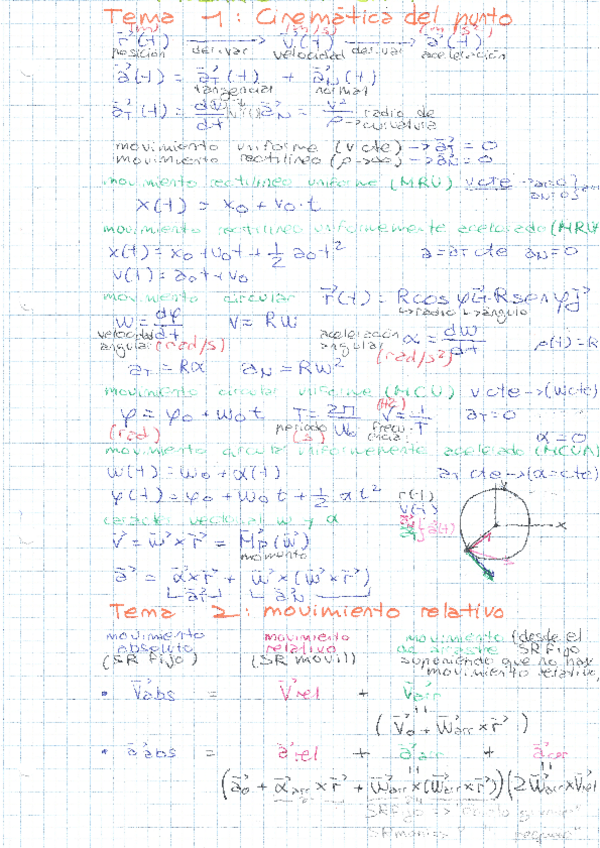 Tema 1: Cinemática del punto
(m) (m/s) (m/s²)
r⃗(t) → v⃗(t) → a⃗(t)
posición derivar velocidad derivar aceleración
a⃗(t) = a⃗T(t) + a⃗N(t)
tangencial normal
a⃗T(t) = dv/dt a⃗N = v²/ρ → radio de curvatura
movimiento uniforme (v cte) → a⃗T = 0
movimiento rectilíneo (ρ→∞) → a⃗N = 0
movimiento rectilíneo uniforme (MRU) v cte → aT=0} aN=0}
x(t) = x0 + v0·t
movimiento rectilíneo uniformemente acelerado (MRU
x(t) = x0 + v0t + 1/2 a0t² a = aT cte aN = 0
v(t) = a0t + v0
movimiento circular r⃗(t) = R cos φ i⃗ + R sen φ j⃗
↳ radio ↳ ángulo
ω = dφ/dt v = Rω aceleración angular α = dω/dt
velocidad angular (rad/s) (rad/s²) ρ(t) = R
aT = Rα aN = Rω²
movimiento circular uniforme (MCU) v cte → (ω cte)
φ = φ0 + ω0t T = 2π/ω0 ν = 1/T aT = 0
(rad) periodo (s) frecuencia (Hz) α = 0
movimiento circular uniformemente acelerado (MCUA)
ω(t) = ω0 + α(t) aT cte → (α = cte)
φ(t) = φ0 + ω0t + 1/2 αt²
r(t)
v(t)
a(t)
x
carácter vectorial ω y α
v⃗ = ω⃗ × r⃗ = M⃗p(ω⃗)
momento
a⃗ = α⃗ × r⃗ + ω⃗ × (ω⃗ × r⃗)
a⃗T a⃗N
Tema 2: movimiento relativo
movimiento absoluto (SR fijo)
movimiento relativo (SR móvil)
movimiento de arrastre (desde el SR fijo suponiendo que no hay movimiento relativo)
• v⃗abs = v⃗rel + v⃗arr
(v⃗0 + ω⃗arr × r⃗)
• a⃗abs = a⃗rel + a⃗arr + a⃗cor
(a⃗0 + α⃗arr × r⃗ + ω⃗arr × (ω⃗arr × r⃗)) (2ω⃗arr × v⃗rel
SR fijo →